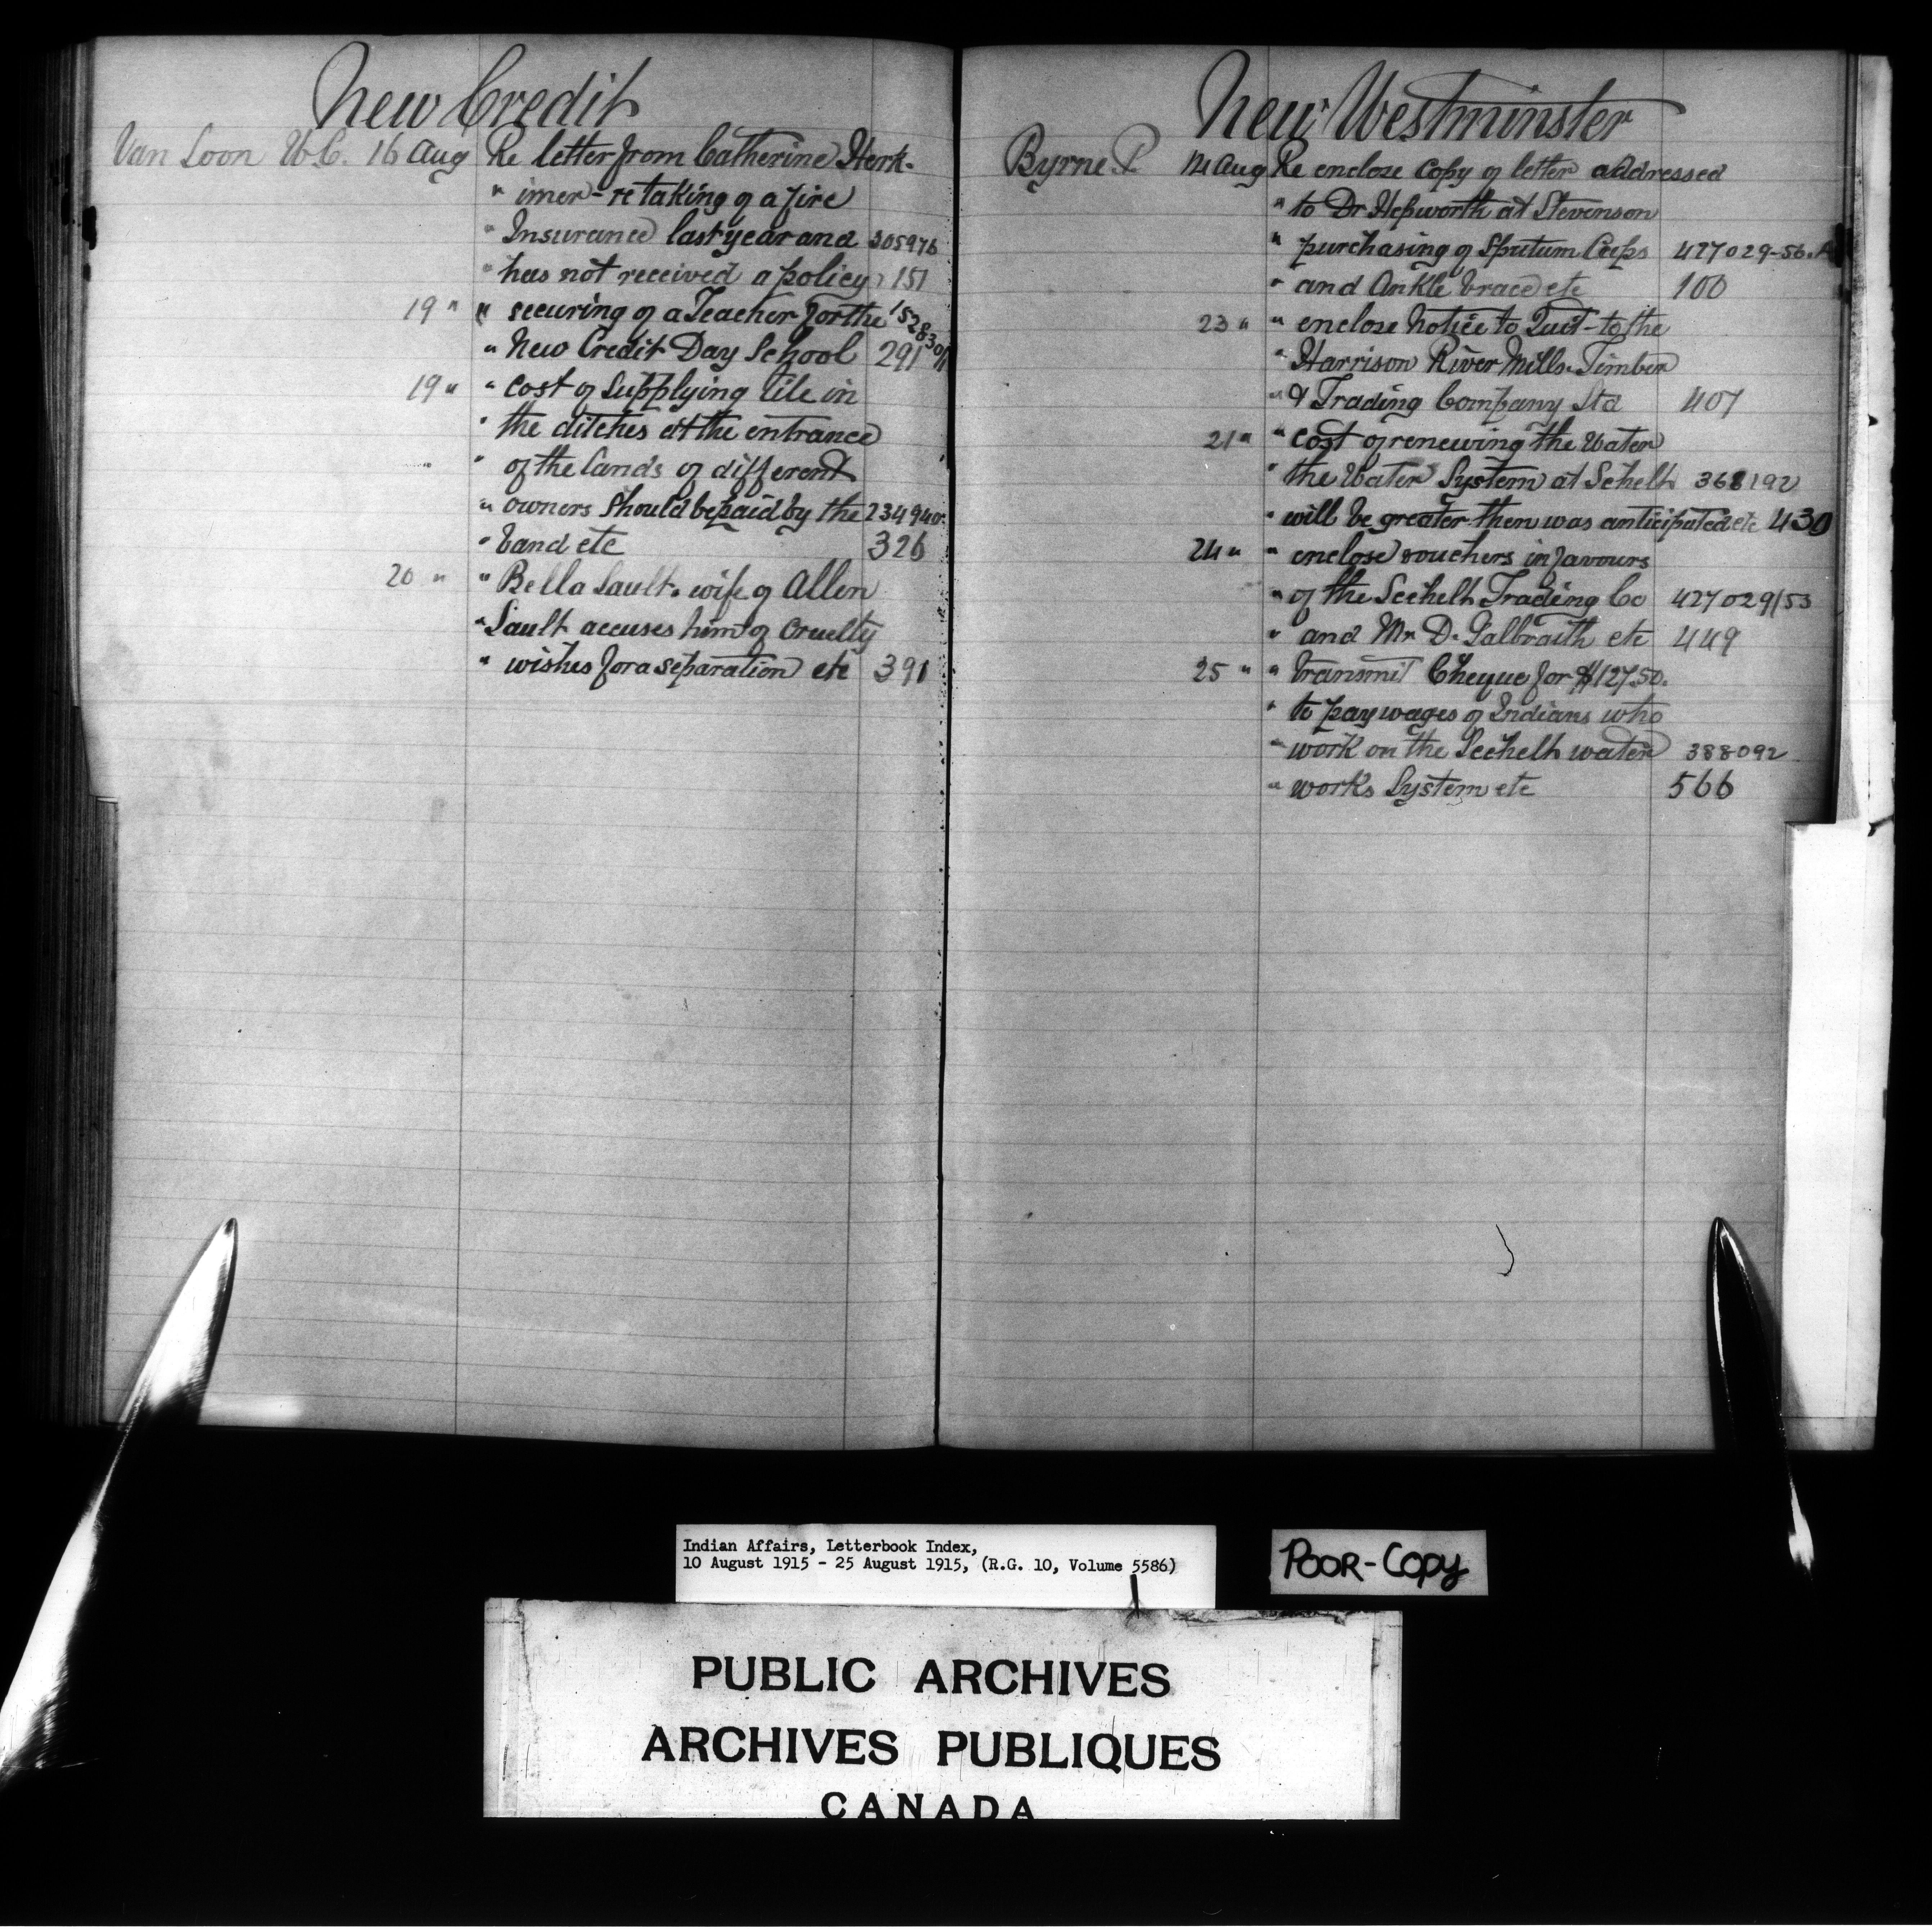 New Credit
Van Loon W.C. 16 Aug Re letter from Catherine Herk-
" imer - re taking of a fire
" Insurance last year and 305976
" has not received a policy 151
19 " " securing of a Teacher for the 15283011
" New Credit Day School 291
19 " " cost of supplying tile in
" the ditches at the entrance
" of the lands of different
" owners should be paid by the 234940
" band etc 326
20 " " Bella Sault. wife of Allen
" Sault accuses him of Cruelty
" wishes for a separation etc 391
New Westminster
Byrne P. 14 Aug Re enclose copy of letter addressed
" to Dr Hepworth at Stevenson
" purchasing of Sputum Cups 427029-56.A
" and Ankle brace etc 100
23 " " enclose Notice to Quit - to the
" Harrison River Mills Timber
" & Trading Company Ltd 407
21 " " cost of renewing the Water
" the Water System at Sehelt 368192
" will be greater then was anticipated etc 430
24 " " enclose vouchers in favours
" of the Seehelt Trading Co 427029/53
" and Mr D. Galbraith etc 449
25 " " transmit Cheque for $127.50.
" to pay wages of Indians who
" work on the Seehelt water 388092
" works System etc 566
Indian Affairs, Letterbook Index,
10 August 1915 - 25 August 1915, (R.G. 10, Volume 5586)
POOR-COPY
PUBLIC ARCHIVES
ARCHIVES PUBLIQUES
CANADA